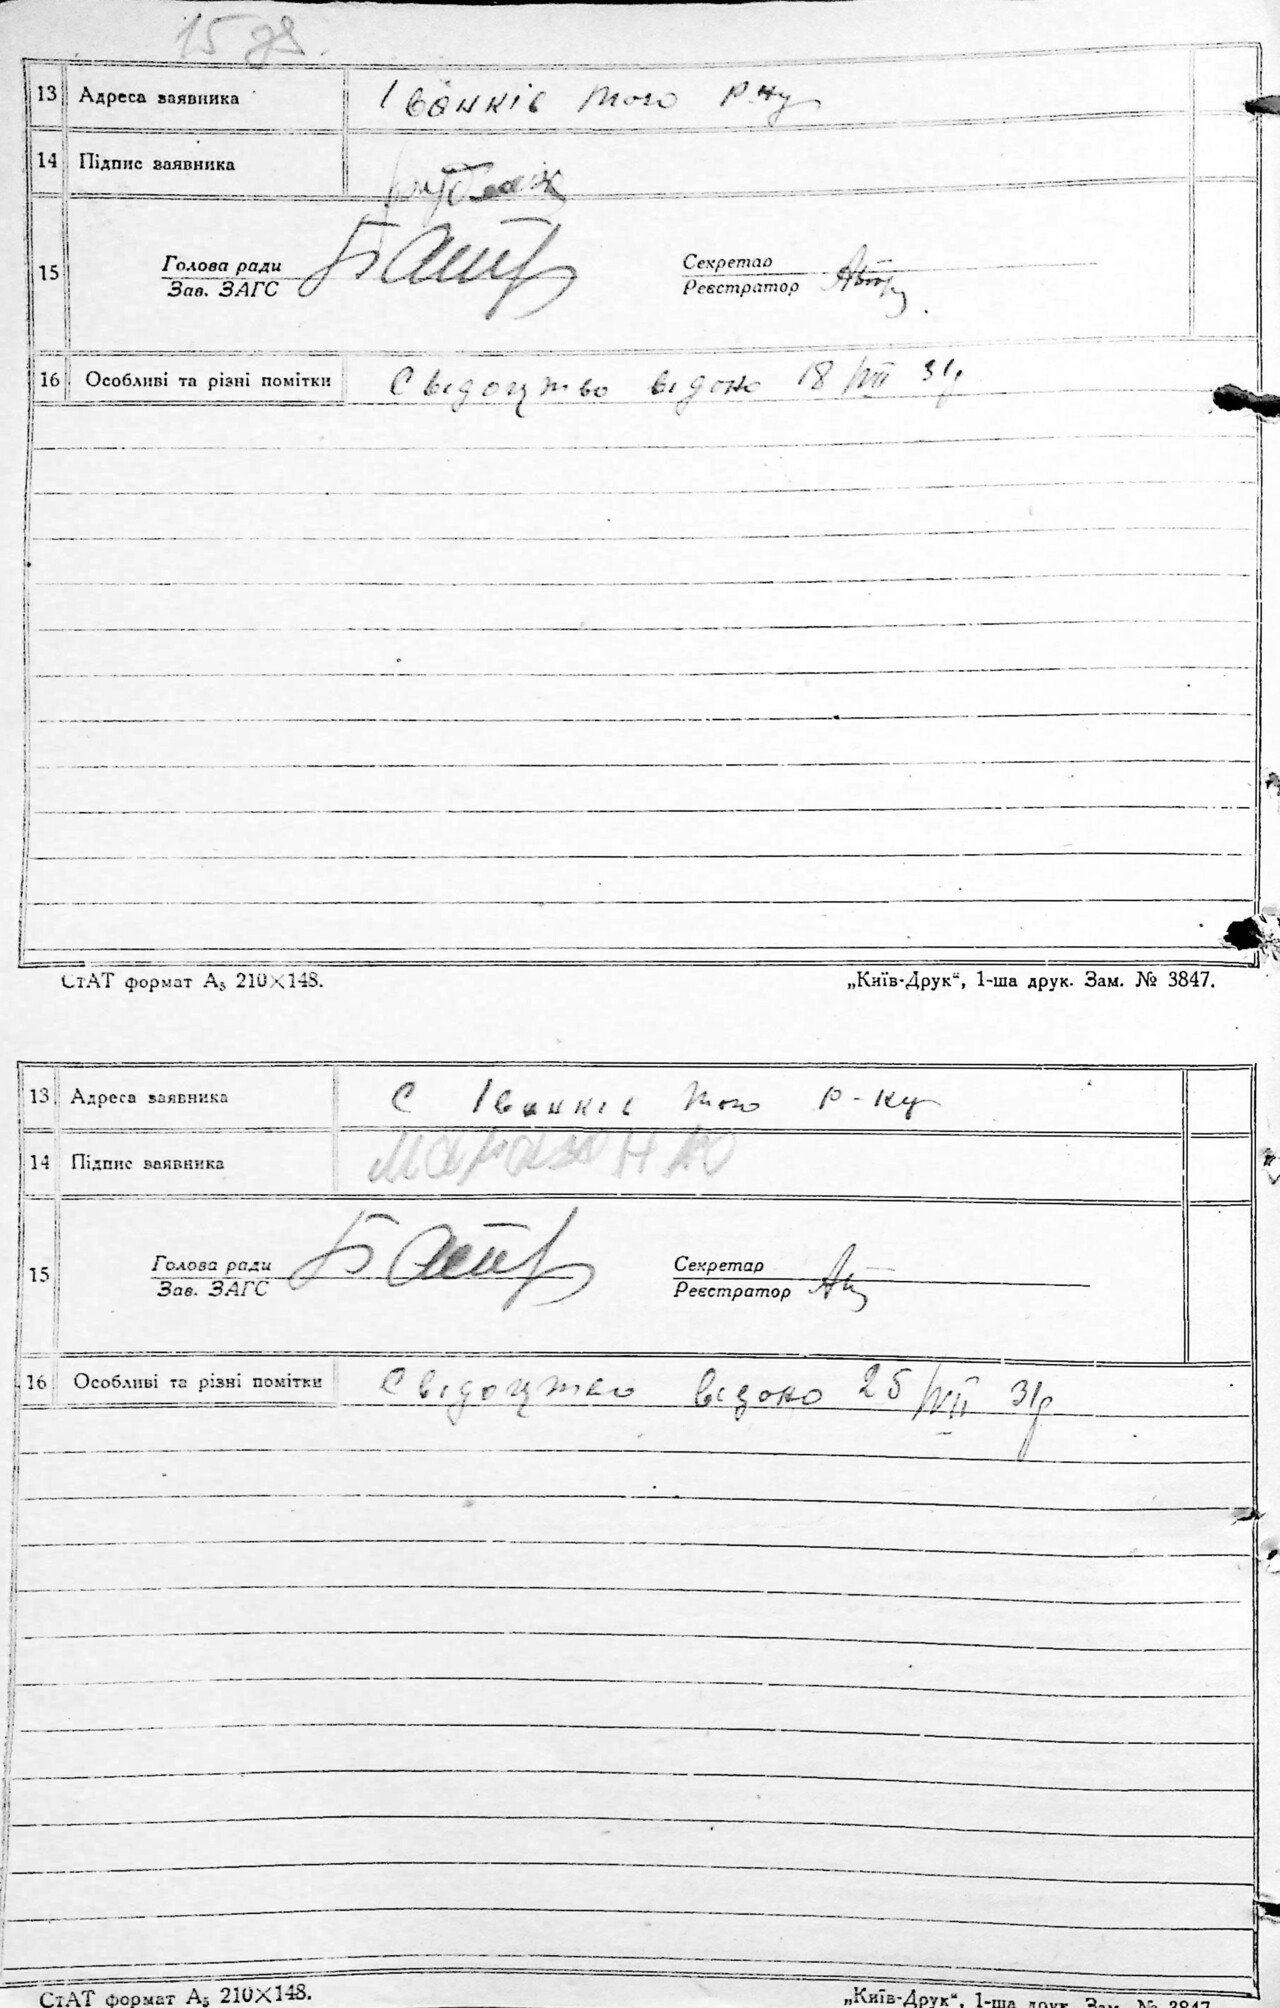 15 дв.
13 Адреса заявника Іванків того р-ну
14 Підпис заявника
Голова ради Секретар
15
Зав. ЗАГС Реєстратор
16 Особливі та різні помітки Свідоцтво відоно 18/VII 31р
СтАТ формат А₅ 210×148. „Київ-Друк“, 1-ша друк. Зам. № 3847.
13 Адреса заявника с Іванків того р-ну
14 Підпис заявника
Голова ради Секретар
15
Зав. ЗАГС Реєстратор
16 Особливі та різні помітки Свідоцтво відоно 25/VII 31р
СтАТ формат А₅ 210×148. „Київ-Друк“, 1-ша друк. Зам. № 3847.